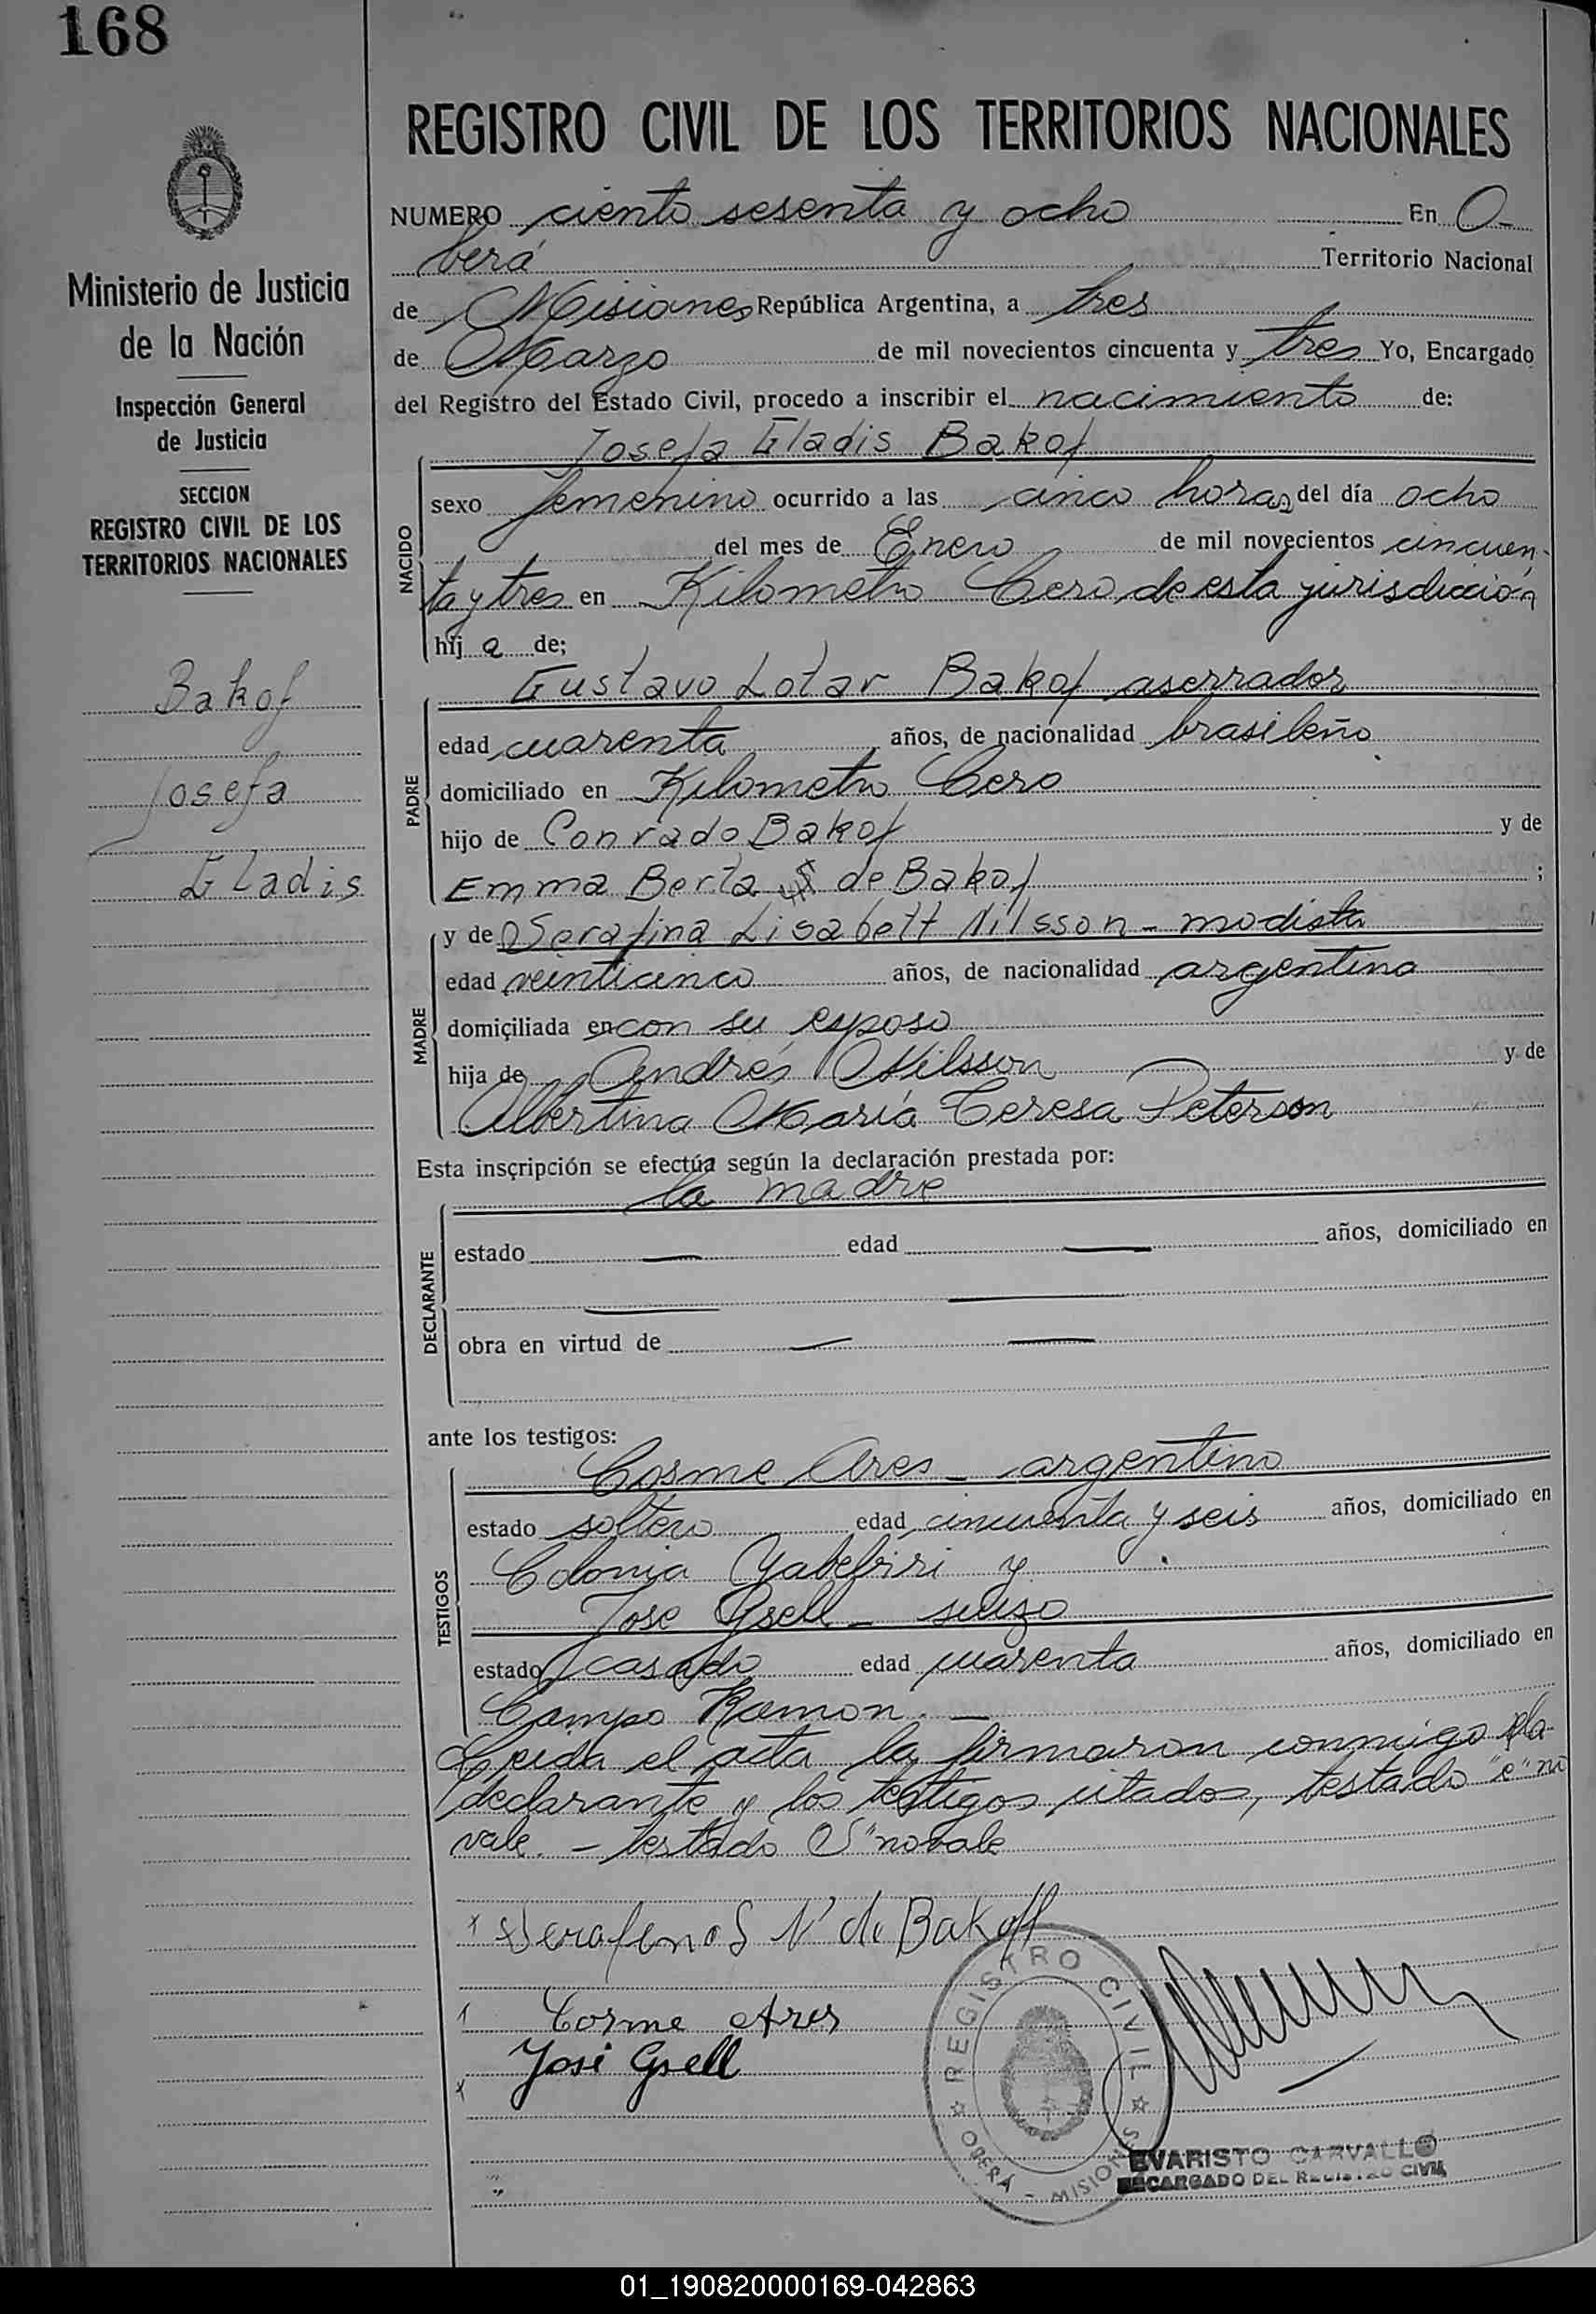 168
Ministerio de Justicia
de la Nación
Inspección General
de Justicia
SECCION
REGISTRO CIVIL DE LOS
TERRITORIOS NACIONALES
Bakof
Josefa
Gladis
REGISTRO CIVIL DE LOS TERRITORIOS NACIONALES
NUMERO ciento sesenta y ocho En O-
berá Territorio Nacional
de Misiones República Argentina, a tres
de Marzo de mil novecientos cincuenta y tres Yo, Encargado
del Registro del Estado Civil, procedo a inscribir el nacimiento de:
Josefa Gladis Bakof
NACIDO
sexo femenino ocurrido a las cinco horas del día ocho
del mes de Enero de mil novecientos cincuen-
ta y tres en Kilometro Cero de esta jurisdicción
hij a de;
Gustavo Lotar Bakof aserrador
PADRE
edad cuarenta años, de nacionalidad brasileño
domiciliado en Kilometro Cero
hijo de Conrado Bakof y de
Emma Berta de Bakof ;
MADRE
y de Serafina Lisabett Nilsson - modista
edad veinticinco años, de nacionalidad argentina
domiciliada en con su esposo
hija de Andrés Nilsson y de
Albertina María Teresa Peterson
Esta inscripción se efectúa según la declaración prestada por:
la madre
DECLARANTE
estado — edad — años, domiciliado en
— —
obra en virtud de — —
ante los testigos:
Cosme Ares - argentino
TESTIGOS
estado soltero edad cincuenta y seis años, domiciliado en
Colonia Yabebiri y
José Gsell - suizo
estado casado edad cuarenta años, domiciliado en
Campo Ramon. —
Leida el acta la firmaron conmigo la
declarante y los testigos citados, testado "e" no
vale. - testado "S" no vale
x Serafina N de Bakoff
Cosme Ares
José Gsell
REGISTRO CIVIL
OBERÁ - MISIONES
EVARISTO CARVALLO
ENCARGADO DEL REGISTRO CIVIL
01_190820000169-042863